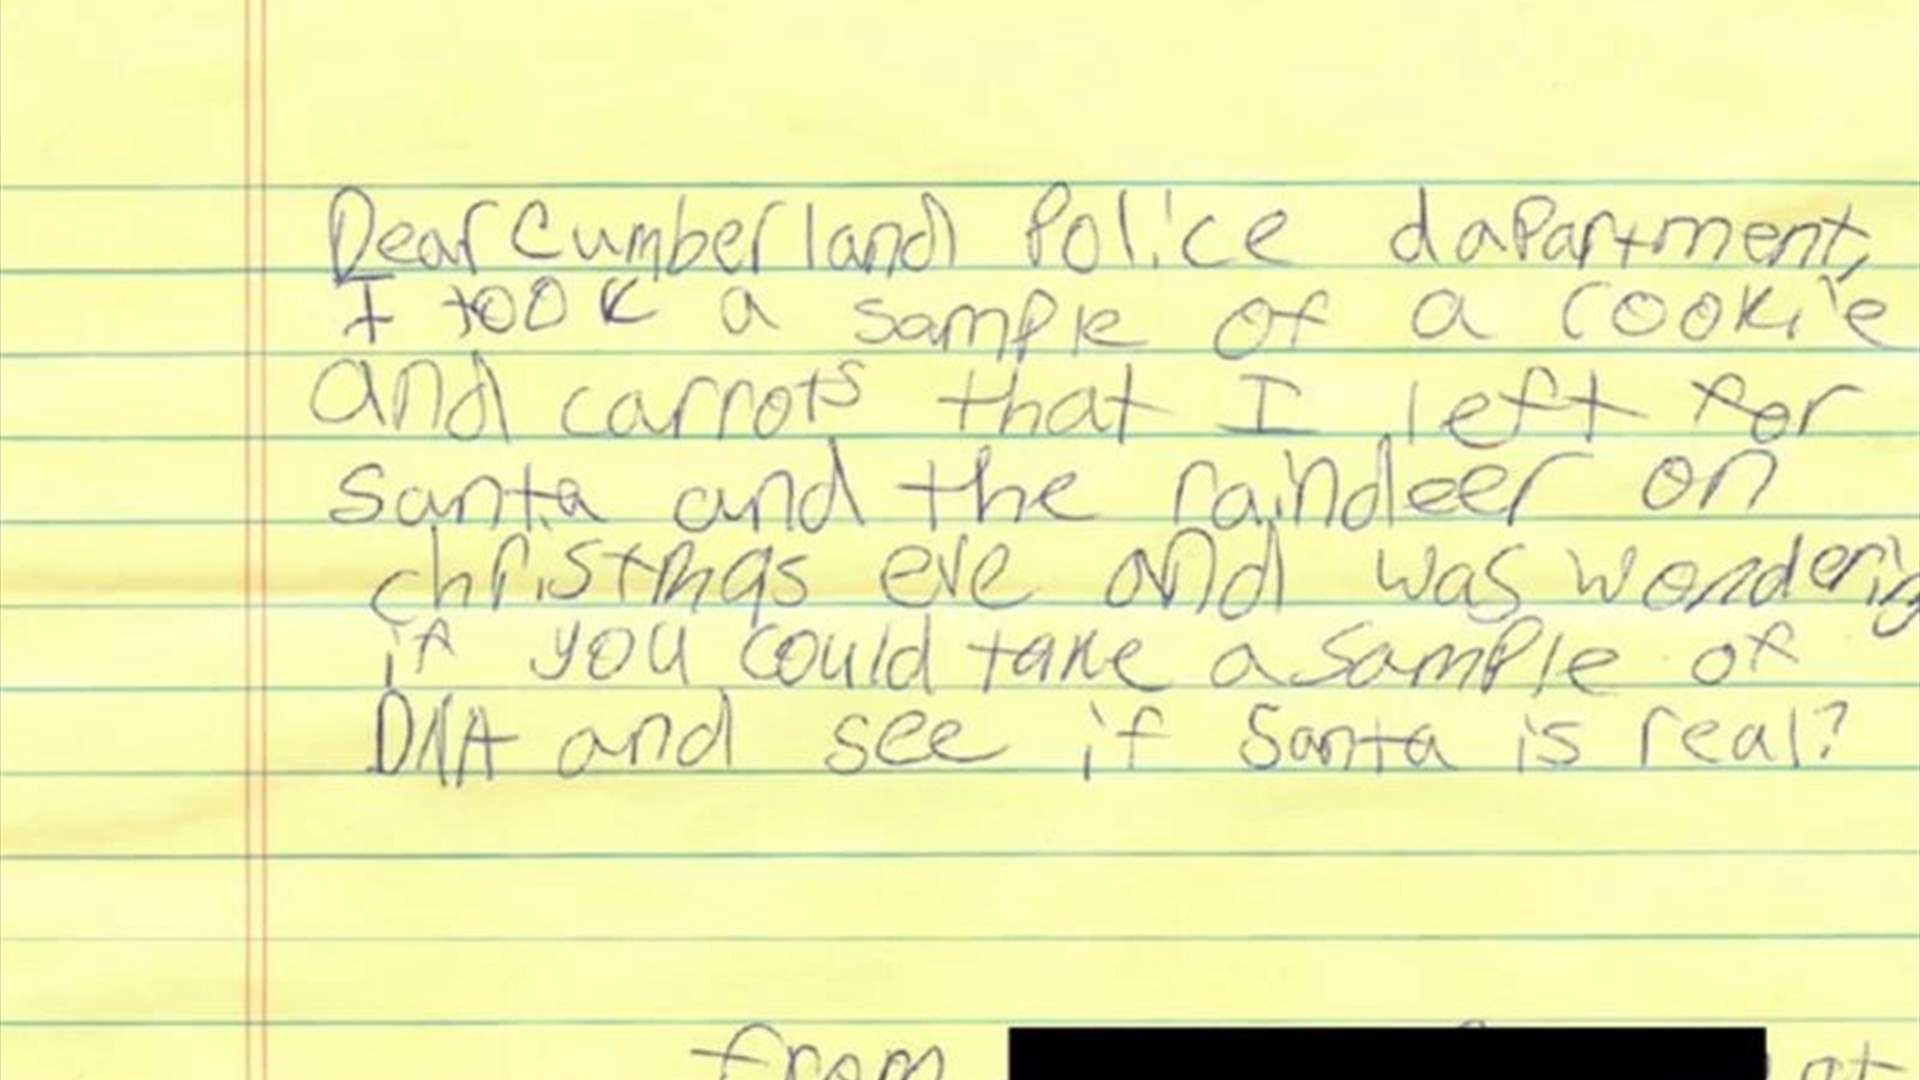 Dear Cumberland Police dapartment,
I took a sample of a cookie
and carrots that I left for
Santa and the raindeer on
christmas eve and was wondering
if you could take a sample of
DNA and see if Santa is real?
from
at